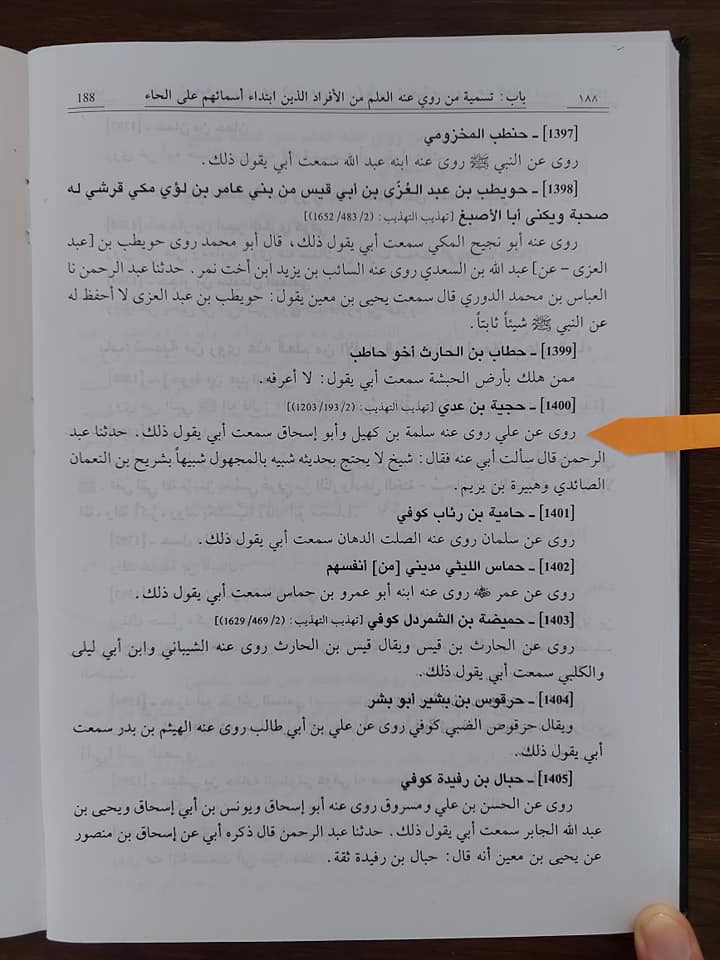 ١٨٨ باب: تسمية من روي عنه العلم من الأفراد الذين ابتداء أسمائهم على الحاء 188
[1397] ـ حنطب المخزومي
روى عن النبي ﷺ روى عنه ابنه عبد الله سمعت أبي يقول ذلك.
[1398] ـ حويطب بن عبد العُزّى بن أبي قيس من بني عامر بن لؤي مكي قرشي له
صحبة ويكنى أبا الأصبغ [تهذيب التهذيب: (2/ 483/ 1652)]
روى عنه أبو نجيح المكي سمعت أبي يقول ذلك، قال أبو محمد روى حويطب بن [عبد
العزى - عن] عبد الله بن السعدي روى عنه السائب بن يزيد ابن أخت نمر. حدثنا عبد الرحمن نا
العباس بن محمد الدوري قال سمعت يحيى بن معين يقول: حويطب بن عبد العزى لا أحفظ له
عن النبي ﷺ شيئاً ثابتاً.
[1399] ـ حطاب بن الحارث أخو حاطب
ممن هلك بأرض الحبشة سمعت أبي يقول: لا أعرفه.
[1400] ـ حجية بن عدي [تهذيب التهذيب: (2/ 193/ 1203)]
روى عن علي روى عنه سلمة بن كهيل وأبو إسحاق سمعت أبي يقول ذلك. حدثنا عبد
الرحمن قال سألت أبي عنه فقال: شيخ لا يحتج بحديثه شبيه بالمجهول شبيهاً بشريح بن النعمان
الصائدي وهبيرة بن يريم.
[1401] ـ حامية بن رئاب كوفي
روى عن سلمان روى عنه الصلت الدهان سمعت أبي يقول ذلك.
[1402] ـ حماس الليثي مديني [من] أنفسهم
روى عن عمر رضي الله عنه روى عنه ابنه أبو عمرو بن حماس سمعت أبي يقول ذلك.
[1403] ـ حميضة بن الشمردل كوفي [تهذيب التهذيب: (2/ 469/ 1629)]
روى عن الحارث بن قيس ويقال قيس بن الحارث روى عنه الشيباني وابن أبي ليلى
والكلبي سمعت أبي يقول ذلك.
[1404] ـ حرقوس بن بشير أبو بشر
ويقال حرقوص الضبي كوفي روى عن علي بن أبي طالب روى عنه الهيثم بن بدر سمعت
أبي يقول ذلك.
[1405] ـ حبال بن رفيدة كوفي
روى عن الحسن بن علي ومسروق روى عنه أبو إسحاق ويونس بن أبي إسحاق ويحيى بن
عبد الله الجابر سمعت أبي يقول ذلك. حدثنا عبد الرحمن قال ذكره أبي عن إسحاق بن منصور
عن يحيى بن معين أنه قال: حبال بن رفيدة ثقة.